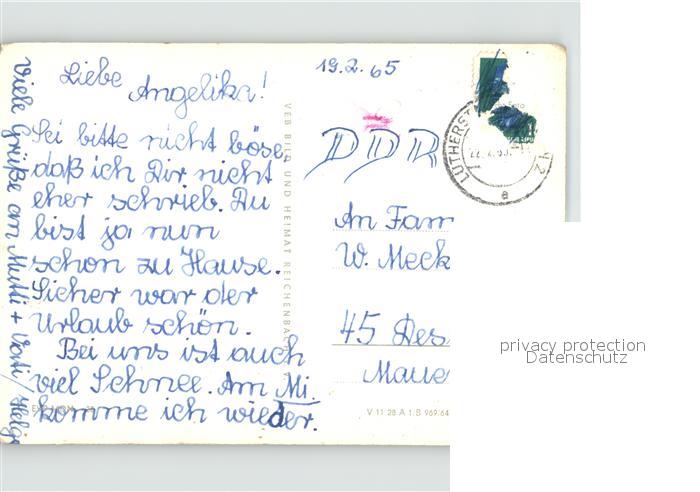 19.2.65
Liebe
Angelika!
Sei bitte nicht böse,
daß ich Dir nicht
eher schrieb. Du
bist ja nun
schon zu Hause.
Sicher war der
Urlaub schön.
Bei uns ist auch
viel Schnee. Am Mi.
komme ich wieder.
Viele Grüße an Mutti + Vati / Helga
VEB BILD UND HEIMAT REICHENBACH
DDR
An Fam
W. Meck
45 Des
Maue
V 11 28 A 1/B 969/64
LUTHERST
privacy protection
Datenschutz